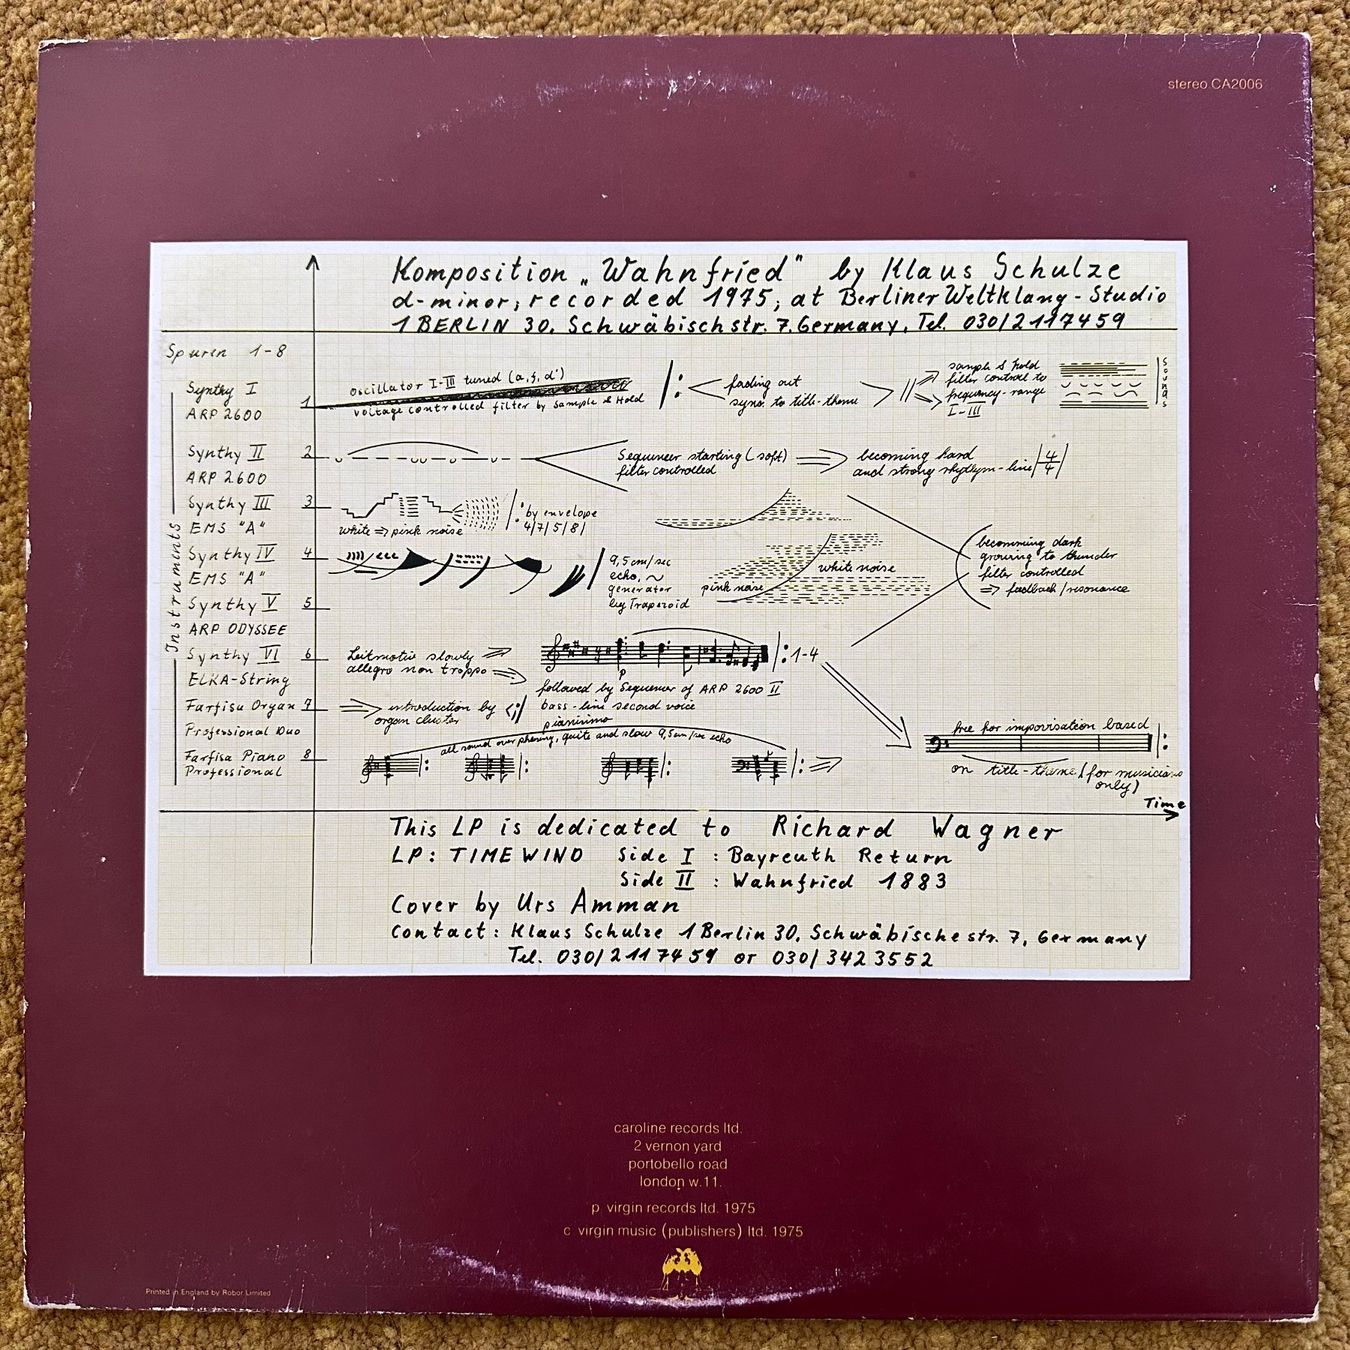 stereo CA2006
Komposition „Wahnfried" by Klaus Schulze
d-minor, recorded 1975, at Berliner Weltklang-Studio
1 BERLIN 30, Schwäbischstr. 7, Germany, Tel. 030/2117459
Spuren 1-8
Instruments
Synthy I
ARP 2600
1
oscillator I-III tuned (a, f, d')
voltage controlled filter by Sample & Hold
fading out
sync. to title-theme
sample & hold
filter control to
frequency-range
I-III
sounds
Synthy II
ARP 2600
2
Sequencer starting (soft)
filter controlled
becoming hard
and strong rhythm-line 4/4
Synthy III
EMS "A"
3
white ⇒ pink noise
by envelope
4/7/5/8/
Synthy IV
EMS "A"
4
9,5cm/sec
echo, ~
generator
by Trapezoid
white noise
pink noise
becomming dark
growing to thunder
filter controlled
⇒ feedback/resonance
Synthy V
ARP ODYSSEE
5
Synthy VI
ELKA-String
6
Leitmotiv slowly
allegro non troppo
1-4
followed by Sequencer of ARP 2600 II
bass-line second voice
Farfisa Organ
Professional Duo
7
introduction by
organ cluster
pianissimo
all sound over phasing, quite and slow 9,5cm/sec echo
Farfisa Piano
Professional
8
free for improvisation based
on title-theme (for musicians
only)
Time
This LP is dedicated to Richard Wagner
LP: TIMEWIND Side I : Bayreuth Return
Side II : Wahnfried 1883
Cover by Urs Amman
Contact: Klaus Schulze 1 Berlin 30, Schwäbische str. 7, Germany
Tel. 030/2117459 or 030/3423552
caroline records ltd.
2 vernon yard
portobello road
london w.11.
p virgin records ltd. 1975
c virgin music (publishers) ltd. 1975
Printed in England by Robor Limited